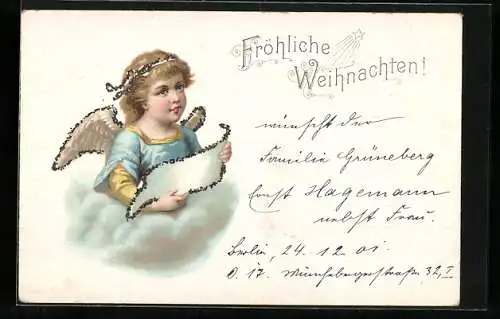 Fröhliche
Weihnachten!
wünscht der
Familie Grüneberg
Ernst Hagemann
nebst Frau.
Berlin, 24. 12. 01
O. 17. Münchebergerstraße 32, I